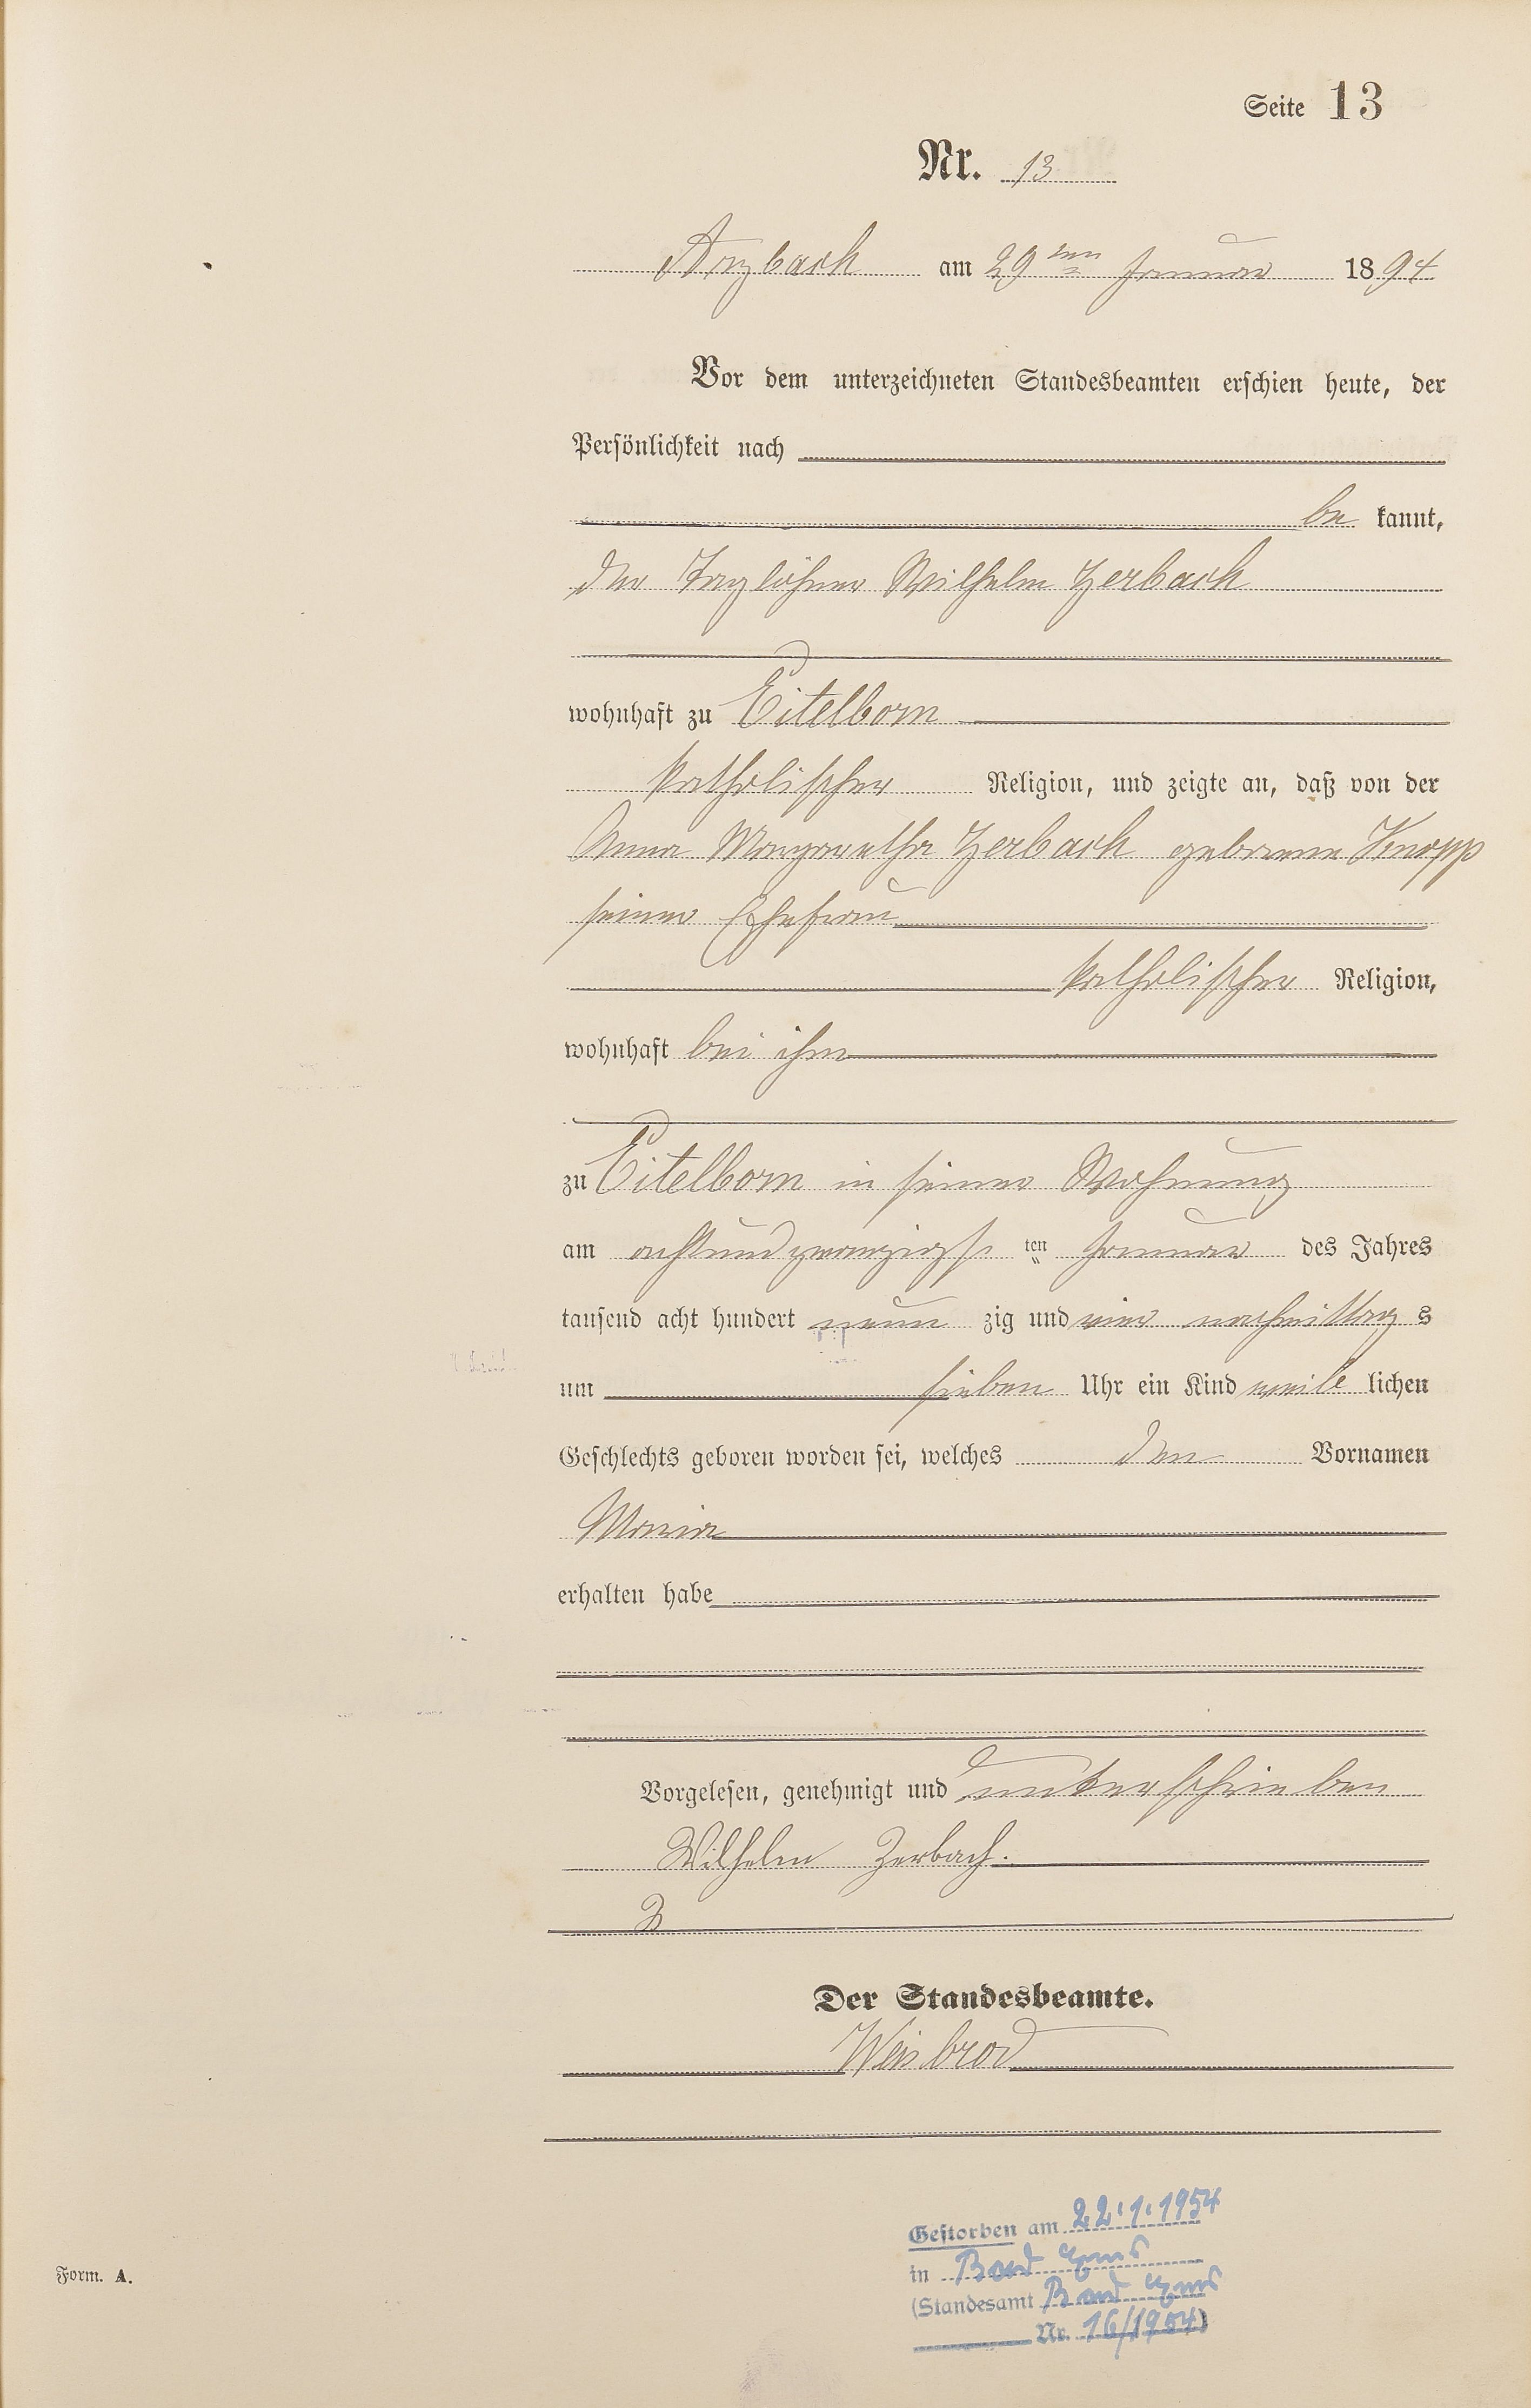 Seite 13
Nr. 13
Arzbach am 29ten Januar 1894
Vor dem unterzeichneten Standesbeamten erschien heute, der
Persönlichkeit nach
be kannt,
der Taglöhner Wilhelm Zerbach
wohnhaft zu Eitelborn
katholischer Religion, und zeigte an, daß von der
Anna Margaretha Zerbach geborene Knopp
seiner Ehefrau
katholischer Religion,
wohnhaft bei ihm
zu Eitelborn in seiner Wohnung
am achtundzwanzigsten Januar des Jahres
tausend acht hundert neun zig und vier nachmittag s
um sieben Uhr ein Kind weib lichen
Geschlechts geboren worden sei, welches den Vornamen
Maria
erhalten habe
Vorgelesen, genehmigt und unterschrieben
Wilhelm Zerbach.
Der Standesbeamte.
Weisbrod
Gestorben am 22.1.1954
in Bad Ems
(Standesamt Bad Ems
Nr. 16/1954)
Form. A.